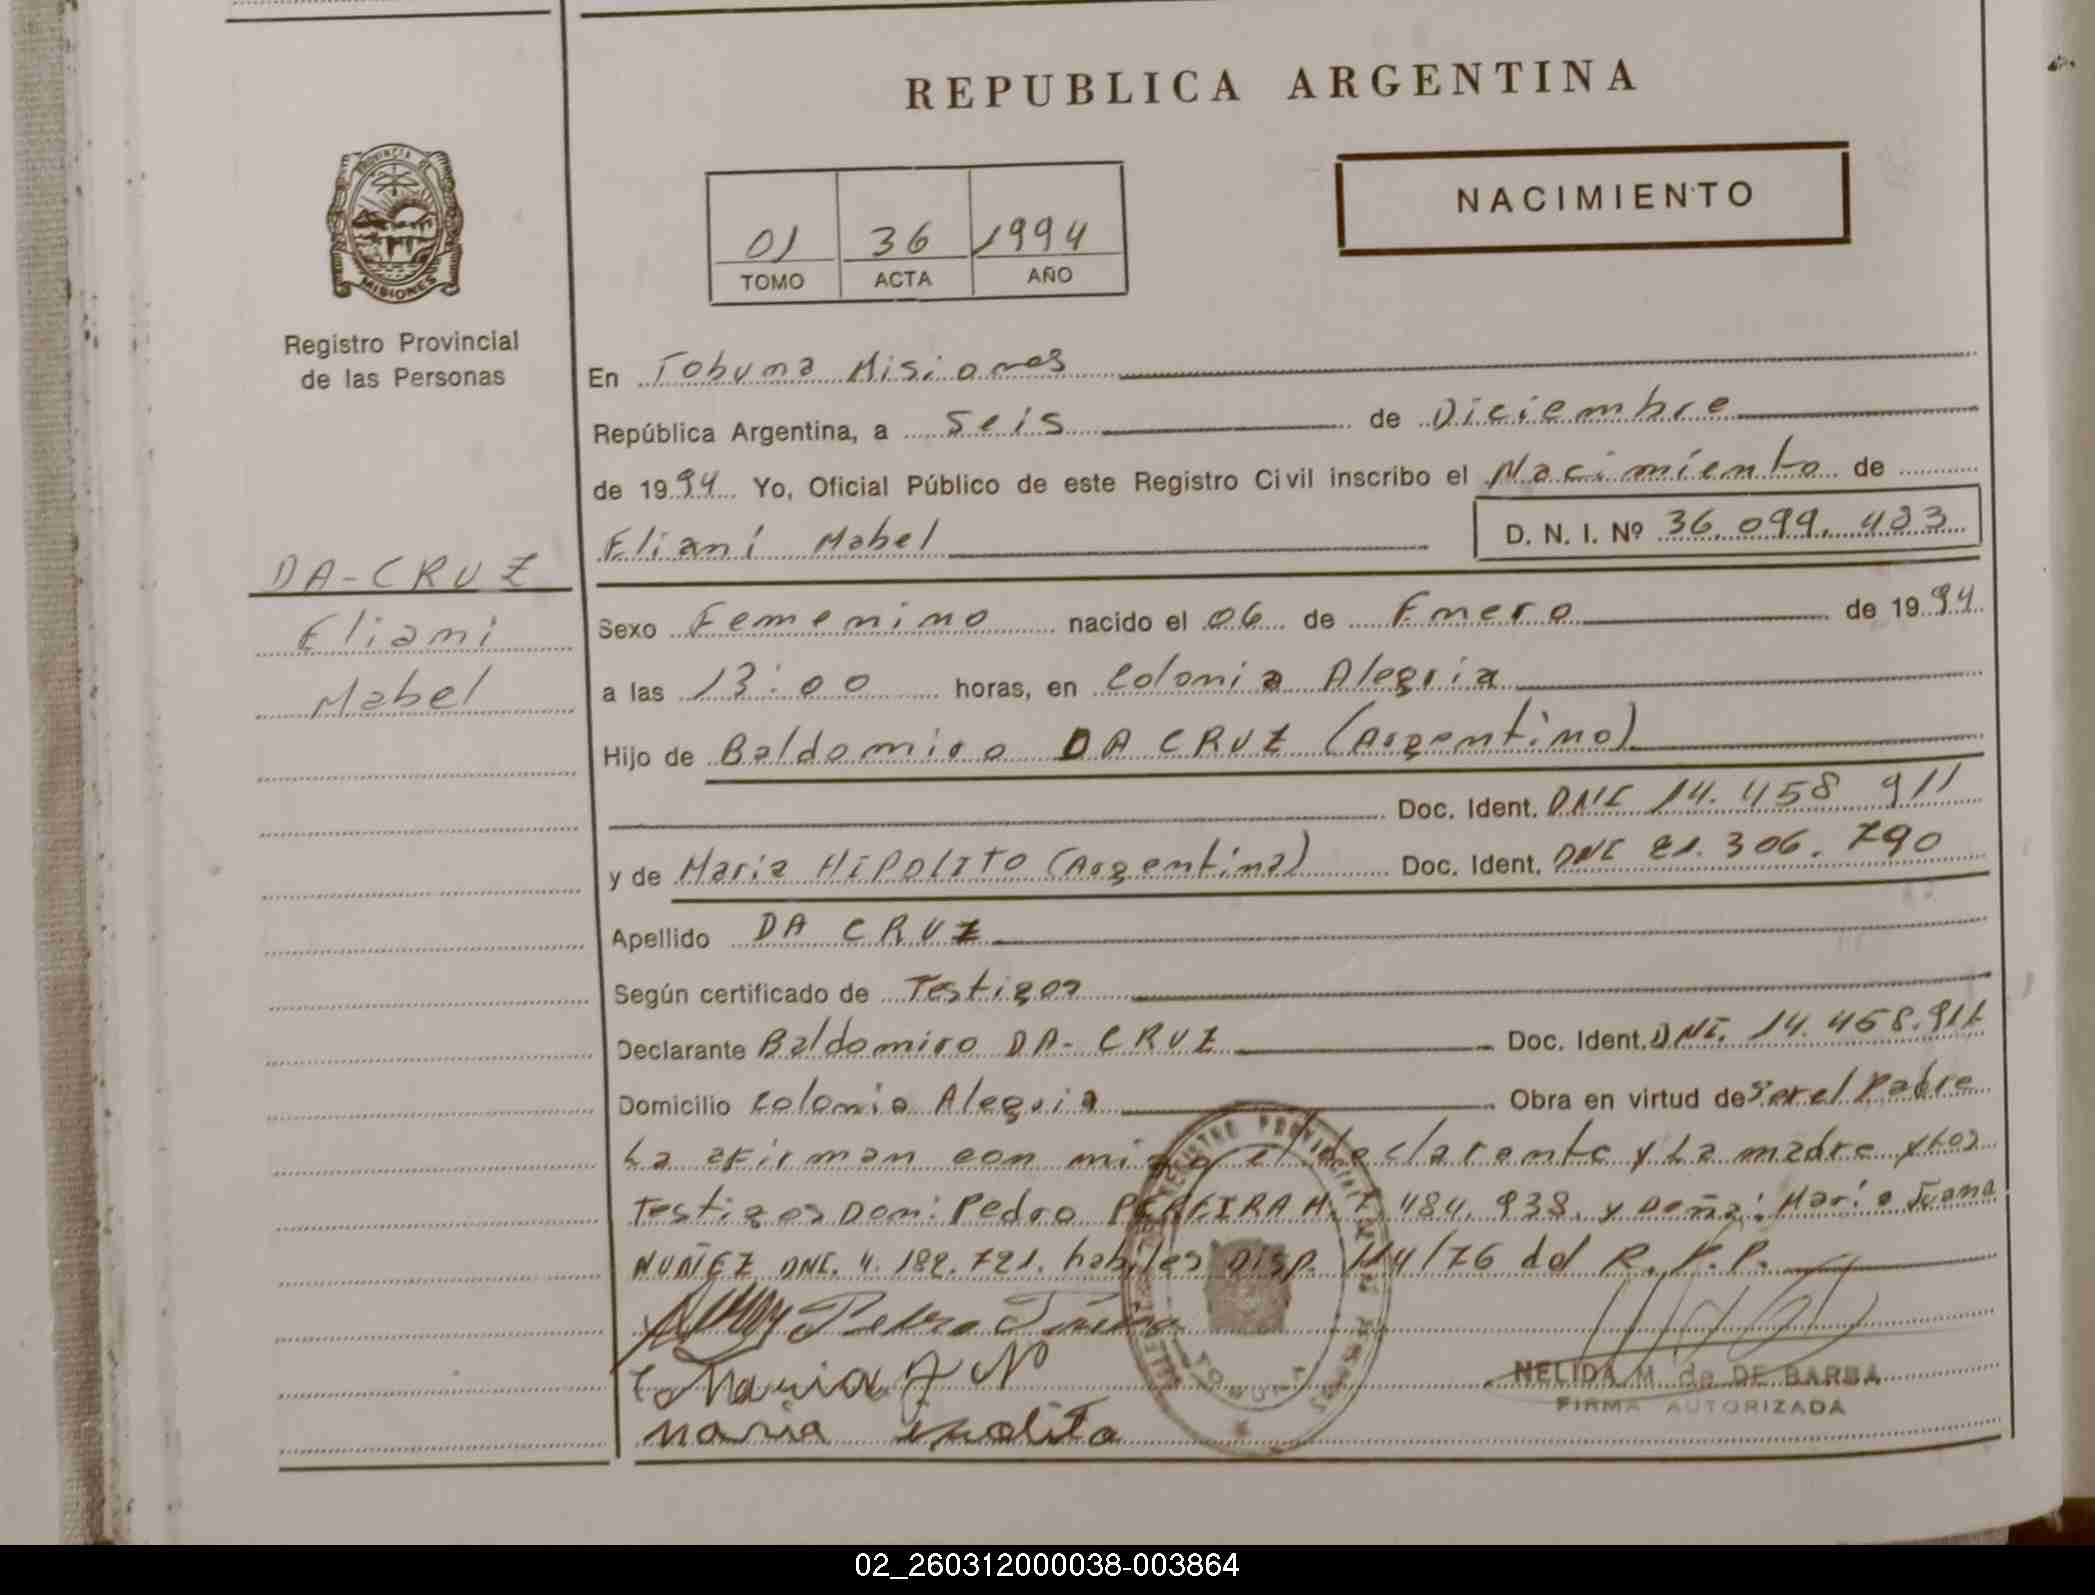 REPUBLICA ARGENTINA
NACIMIENTO
PROVINCIA DE
MISIONES
01 36 1994
TOMO ACTA AÑO
Registro Provincial
de las Personas
DA-CRUZ
Eliani
Mabel
En Tobuna Misiones
República Argentina, a Seis de Diciembre
de 1994 Yo, Oficial Público de este Registro Civil inscribo el Nacimiento de
Eliani Mabel D. N. I. Nº 36.099.423
Sexo Femenino nacido el 06 de Enero de 1994
a las 13:00 horas, en Colonia Alegria
Hijo de Baldomiro DA CRUZ (Argentino)
Doc. Ident. DNI 14.458 911
y de Maria HIPOLITO (Argentina) Doc. Ident. DNI 21.306.790
Apellido DA CRUZ
Según certificado de Testigos
Declarante Baldomiro DA-CRUZ Doc. Ident. DNI. 14.458.911
Domicilio Colonia Alegria Obra en virtud de Ser el Padre
La afirman con migo el declarante y La madre y Los
Testigos Don: Pedro PEREIRA M. 7 484.938. y Doña: Maria Juana
NUÑEZ DNI. 4.182.721. habiles Disp. 114/76 del R.P.P.
Pedro
Maria J N
maria ipolito
REGISTRO PROVINCIAL DE LAS PERSONAS
TOBUNA
NELIDA M. de DE BARBA
FIRMA AUTORIZADA
02_260312000038-003864